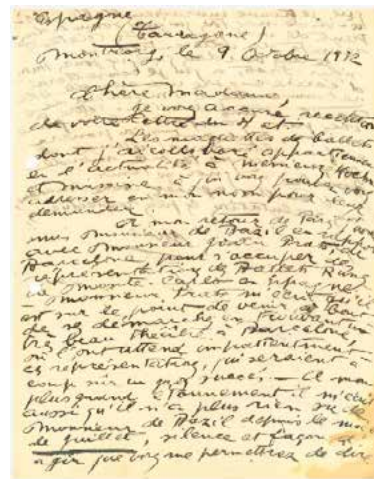 Espagne
(Tarragone)
Montroig, le 9. Octobre 1932
Chère Madame
je vous accuse réception
de votre lettre du et.
Les maquettes de ballets
dont j'ai collaboré appartiennent
en l'actualité à
et Massine à j'ai vous pouvez vous
adresser en mon nom pour leur
demander.
A mon retour de Paris j'avais
mis Monsieur de Bazil en rapport
avec Monsieur Joan Prats de
Barcelone pour s'occuper de
représentations de Ballets Russes
de Monte-Carlo en Espagne
- Monsieur Prats m'écrit qu'il
est sur le point de venir à bout
de ses démarches en trouvant un
très beau théâtre à Barcelone,
où l'ont attend impatiemment
ces représentations, qui seraient à
coup sûr un gros succès. - A mon
plus grand étonnement il m'écrit
aussi qu'il n'a plus rien su de
Monsieur de Bazil depuis le mois
de juillet, silence et façon d'
agir que vous me permettrez de dire